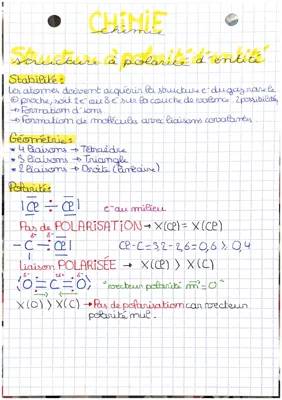 CHIMIE
chimie
Structure à polarité d'entité
Stabilité :
Les atomes doivent acquérir la structure e⁻ du gaz rare le
+ proche, soit 2e⁻ ou 8e⁻ sur la couche de valence 2 possibilités
→ Formation d'ions
→ Formation de molécules avec liaisons covalantes
Géométrie :
• 4 liaisons → Tétraèdre
• 3 liaisons → Triangle
• 2 liaisons → Droite (linéaire)
Polarité :
|Cl ÷ Cl| e⁻ au milieu
Pas de POLARISATION → X(Cl) = X(Cl)
- C ÷ Cl| Cl-C = 3,2-2,6 = 0,6 > 0,4
Liaison POLARISÉE → X(Cl) > X(C)
⟨O = C = O⟩ "vecteur polarité m⃗ = 0"
X(O) > X(C) → Pas de polarisation car vecteur
polarité nul.